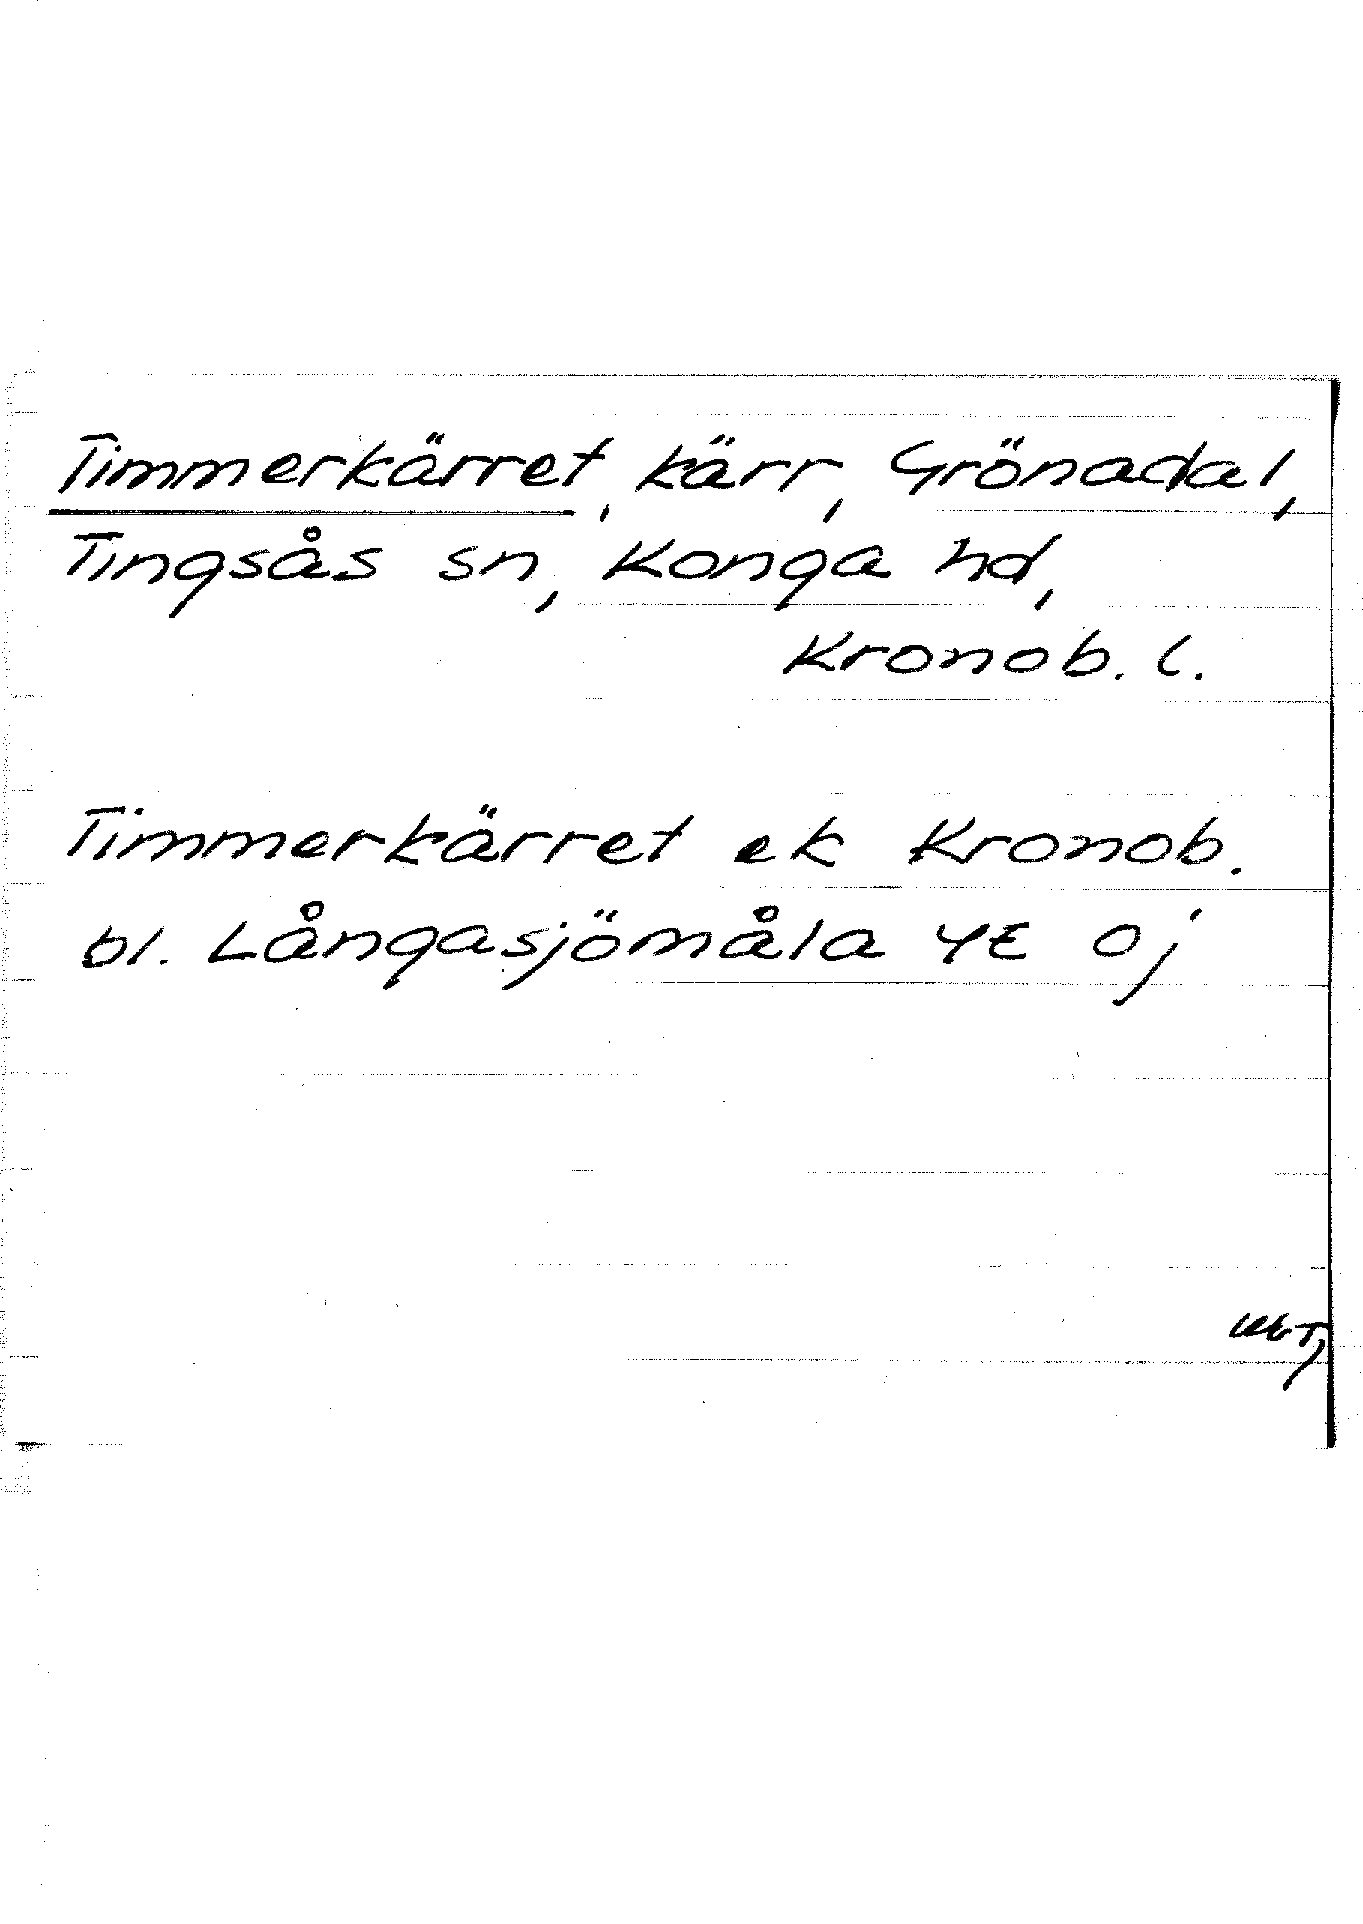 Timmerkärret, kärr, Grönadal,
Tingsås sn, Konga hd,
Kronob. l.
Timmerkärret ek Kronob.
bl. Långasjömåla 4E oj